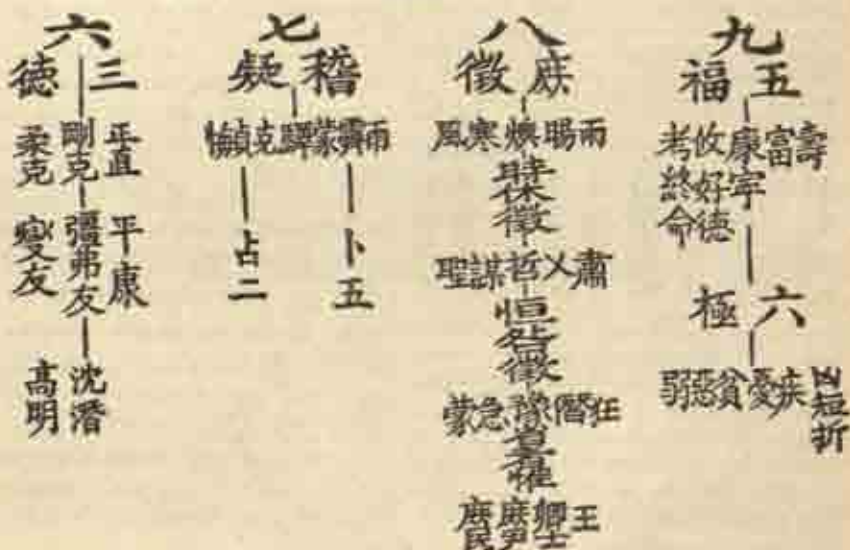 九
五福
壽
富
康寧
攸好德
考終命
六極
凶短折
疾憂貧惡弱
八
庶徵
雨暘燠寒風
時休徵
肅乂哲謀聖
恒咎徵
狂僭豫急蒙
王
卿士
庶尹
庶民
七
稽疑
雨霽蒙驛克貞悔
卜五
占二
六
三德
正直
剛克
柔克
平康
彊弗友
燮友
沈潛
高明